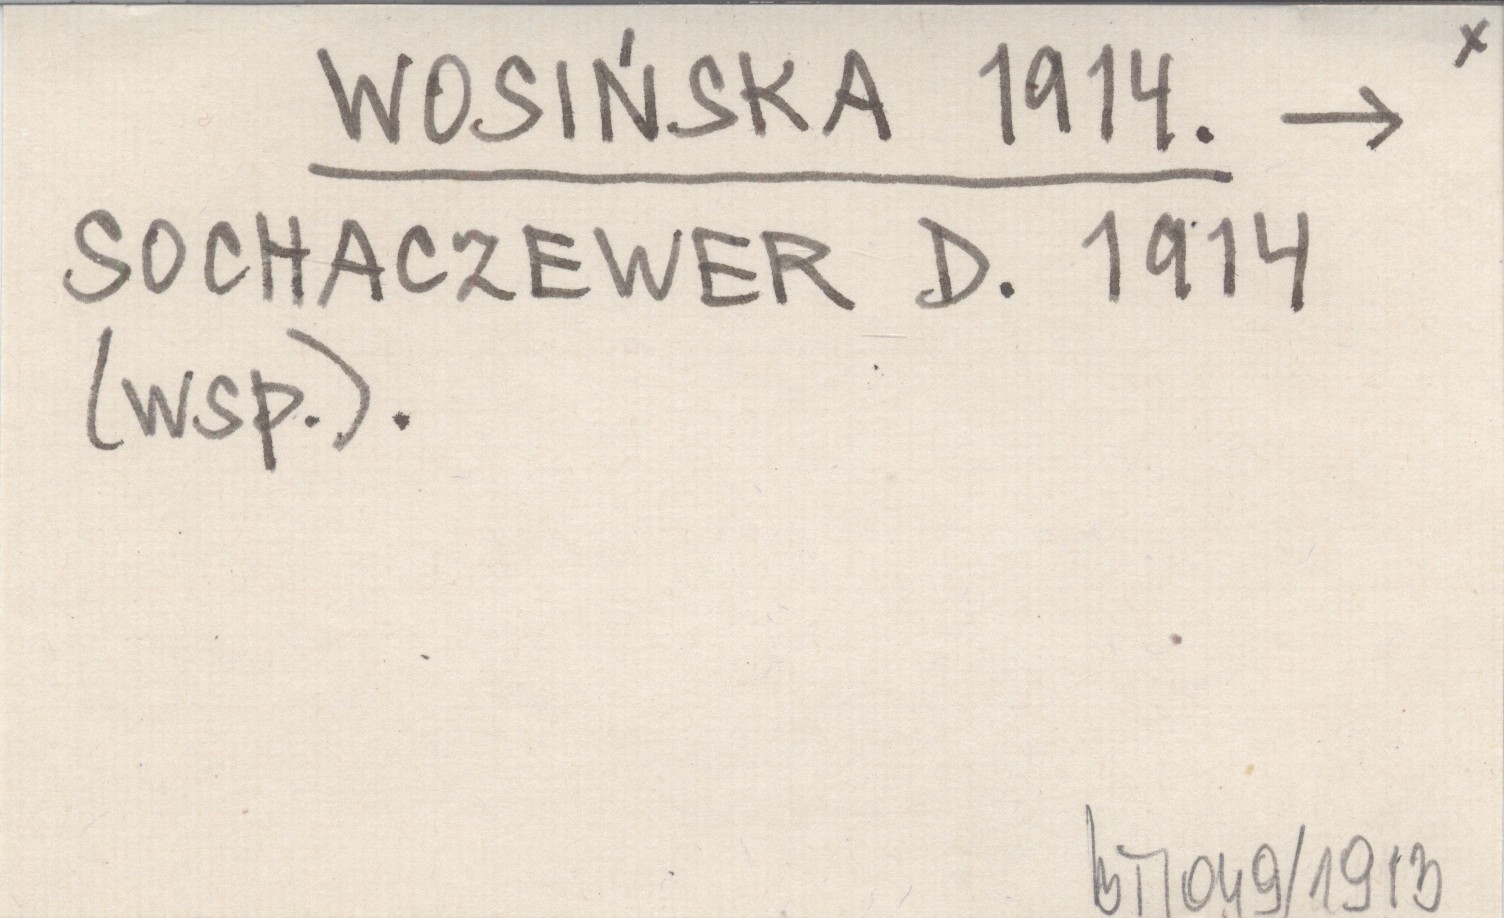 x
WOSIŃSKA 1914. →
SOCHACZEWER D. 1914
(wsp.).
049/1913